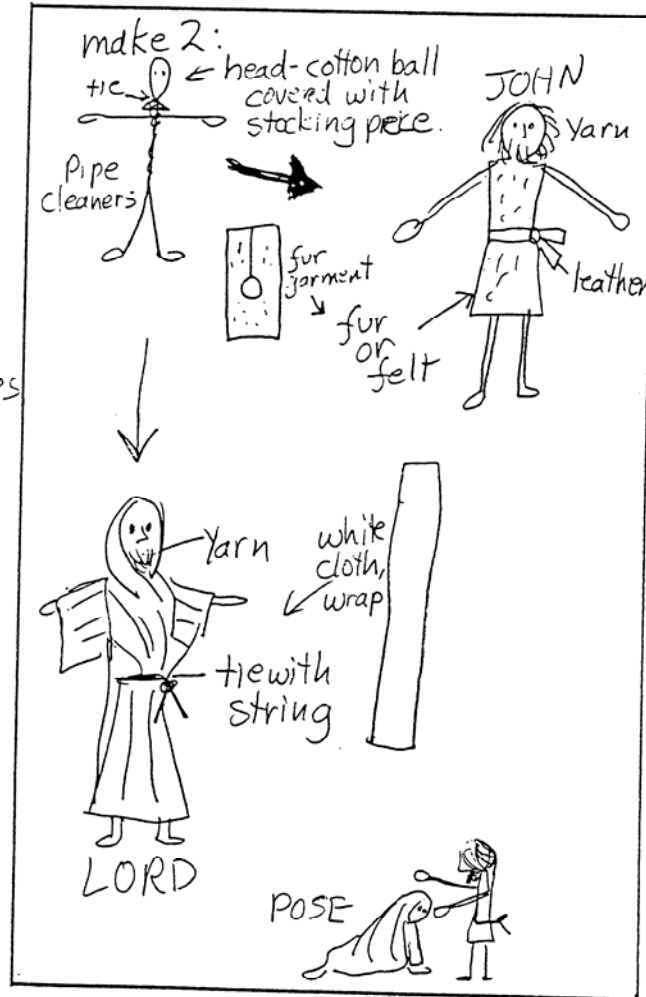 make 2:
head-cotton ball
covered with
stocking piece.
tie
Pipe
cleaners
JOHN
Yarn
leather
fur
garment
fur
or
felt
Yarn
white
cloth,
wrap
tie with
string
LORD
POSE